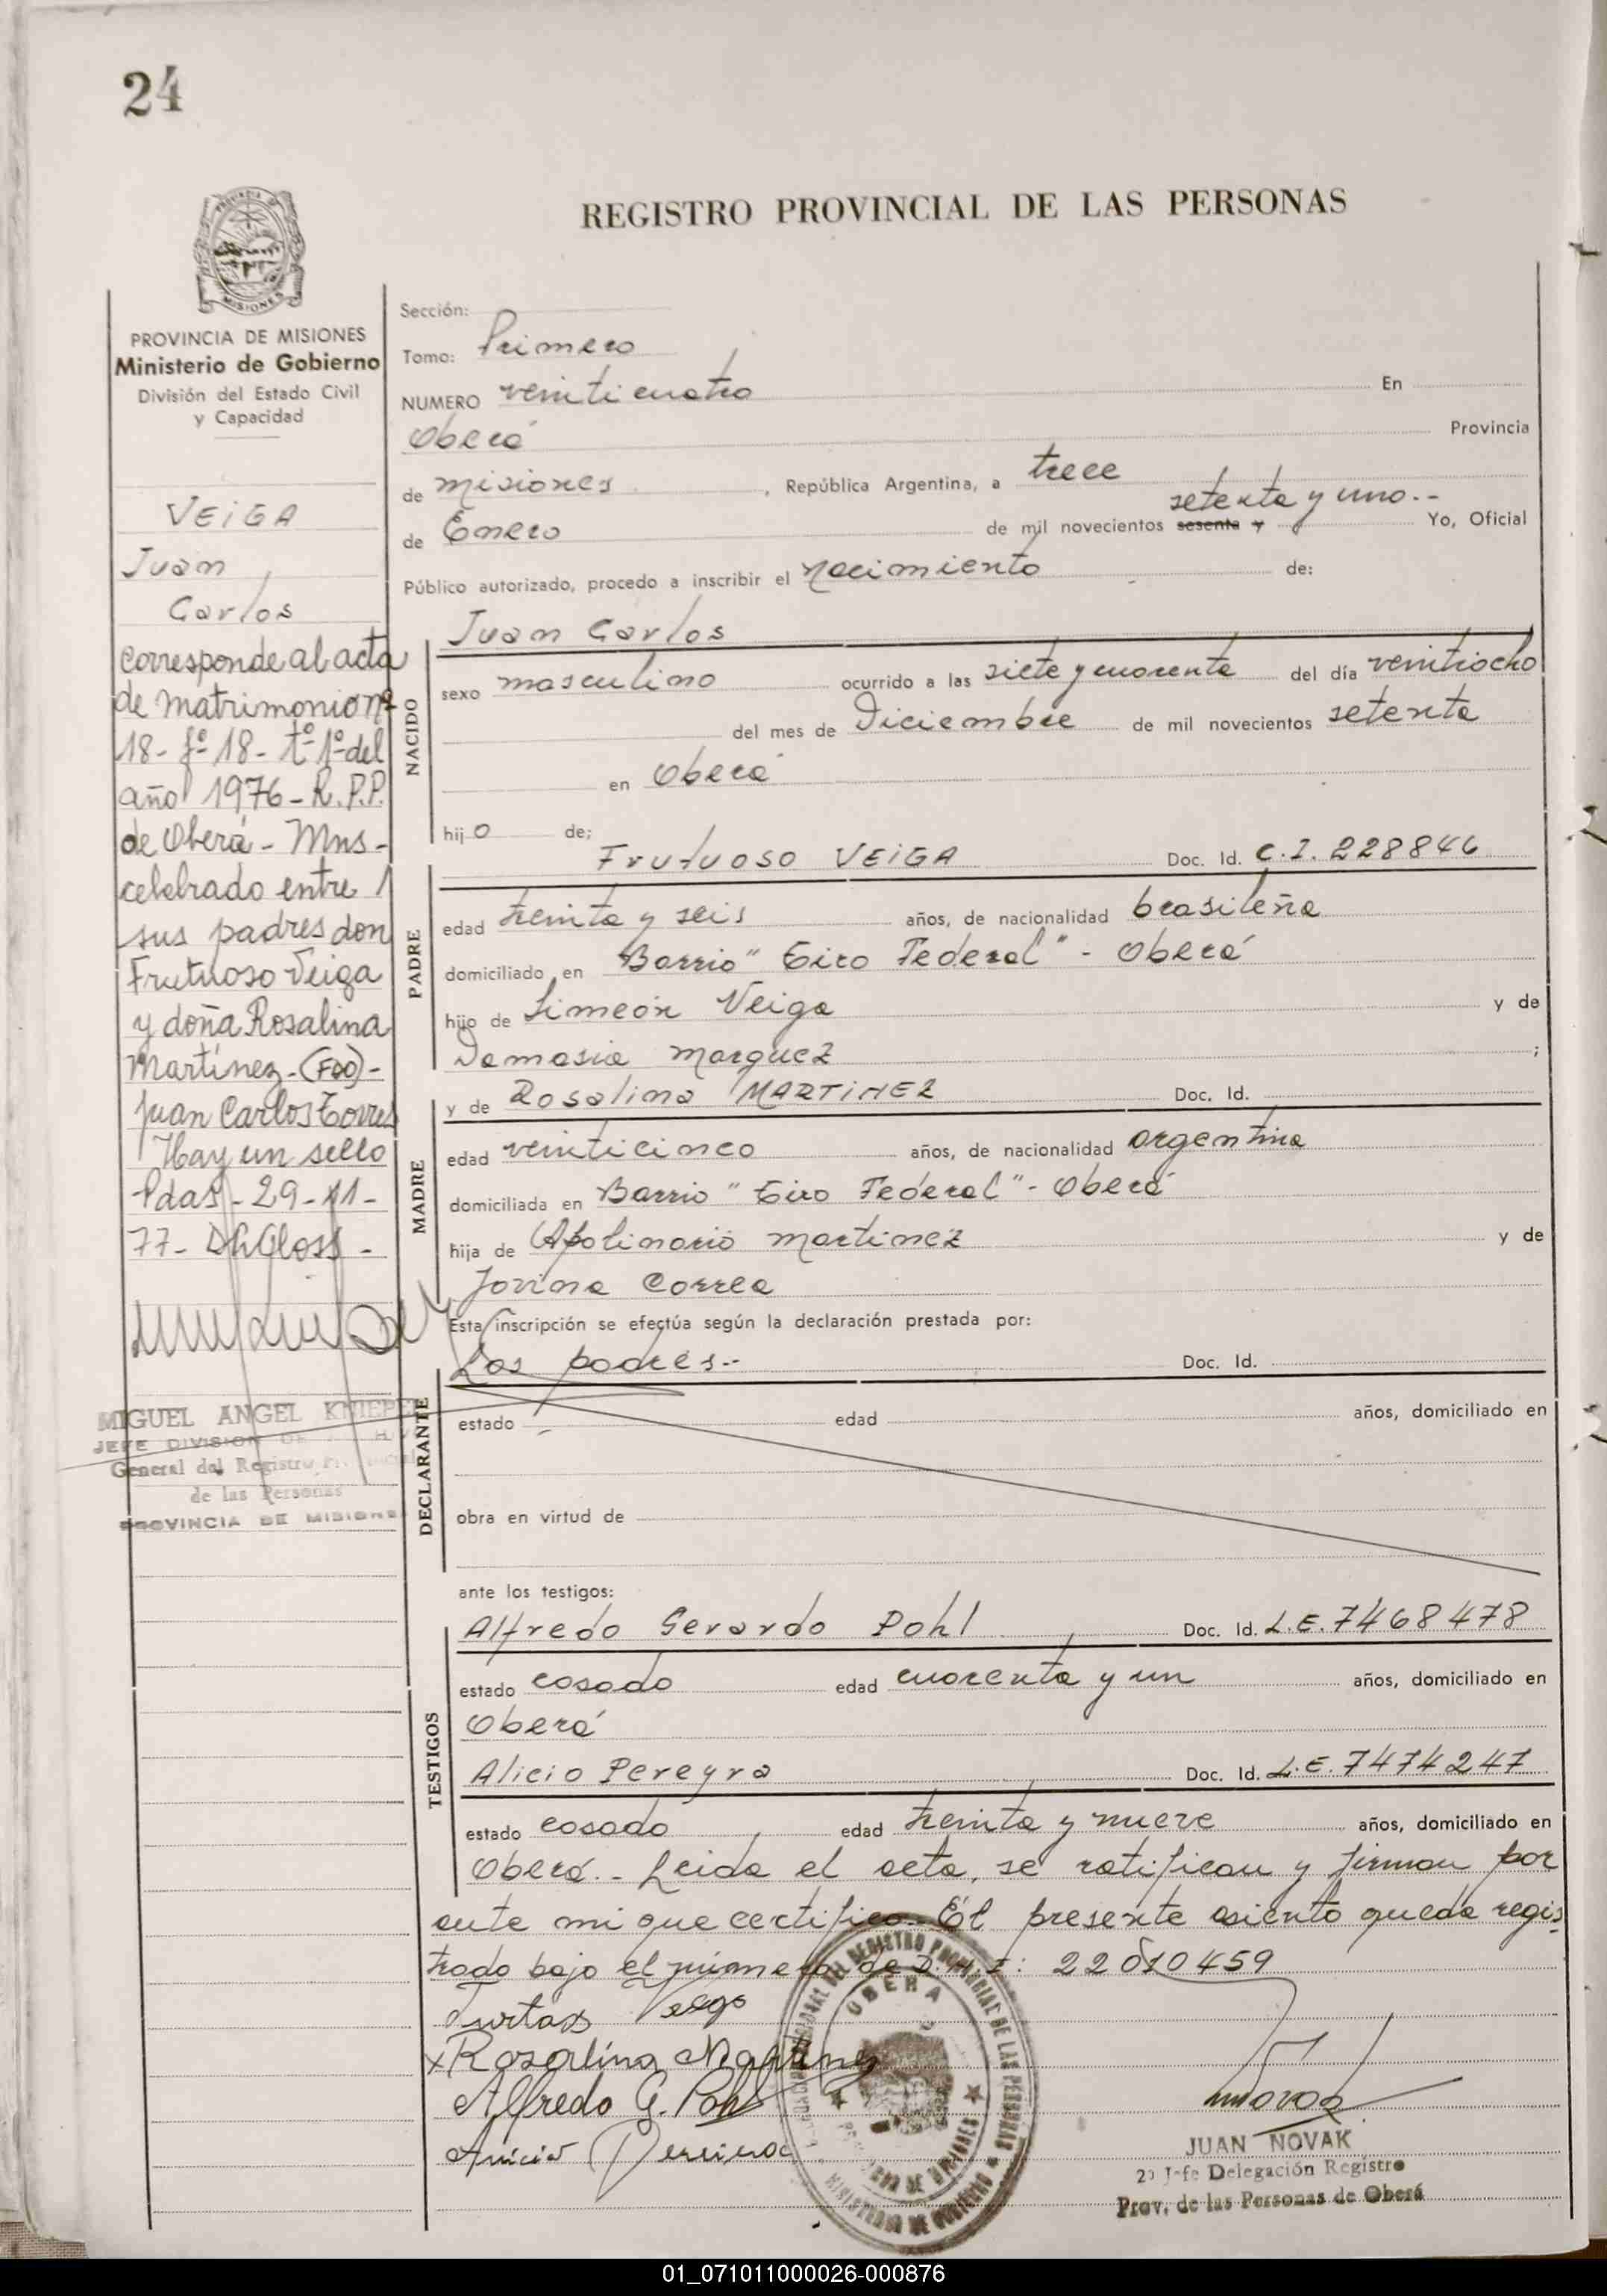 24
REGISTRO PROVINCIAL DE LAS PERSONAS
MISIONES
PROVINCIA DE MISIONES
Ministerio de Gobierno
División del Estado Civil
y Capacidad
VEIGA
Juan
Carlos
Corresponde al acta
de Matrimonio nº
18 - fº 18 - tº 1º del
año 1976 - R.P.P.
de Oberá - Mns -
celebrado entre
sus padres don
Frutuoso Veiga
y doña Rosalina
Martínez - (FDO) -
Juan Carlos Torres
Hay un sello
Pdas - 29 - 11 -
77 -
MIGUEL ANGEL
JEFE DIVISION
General del Registro
de las Personas
PROVINCIA DE MISIONES
Sección:
Tomo: Primero
NUMERO veinticuatro En
Oberá Provincia
de Misiones, República Argentina, a trece
de Enero de mil novecientos sesenta y setenta y uno.- Yo, Oficial
Público autorizado, procedo a inscribir el nacimiento de:
Juan Carlos
NACIDO
sexo masculino ocurrido a las siete y cuarenta del día veintiocho
del mes de Diciembre de mil novecientos setenta
en Oberá
hijo de:
Frutuoso VEIGA Doc. Id. C.I. 228846
PADRE
edad treinta y seis años, de nacionalidad brasileña
domiciliado en Barrio "Tiro Federal" - Oberá
hijo de Simeón Veiga y de
Damasia Marquez ;
y de Rosalina MARTINEZ Doc. Id.
MADRE
edad veinticinco años, de nacionalidad argentina
domiciliada en Barrio "Tiro Federal" - Oberá
hija de Apolinario Martinez y de
Jovina Correa
Esta inscripción se efectúa según la declaración prestada por:
Los padres.- Doc. Id.
DECLARANTE
estado edad años, domiciliado en
obra en virtud de
ante los testigos:
Alfredo Gerardo Pohl Doc. Id. L.E. 7468478
TESTIGOS
estado casado edad cuarenta y un años, domiciliado en
Oberá
Alicio Pereyra Doc. Id. L.E. 7474247
estado casado edad treinta y nueve años, domiciliado en
Oberá.- Leida el acta, se ratifican y firman por
ante mi que certifico.- El presente asiento queda regis
trado bajo el número de D.N.I: 22010459
Rosarlina Martinez
Alfredo G. Pohl
OBERA
JUAN NOVAK
2º Jefe Delegación Registro
Prov. de las Personas de Oberá
01_071011000026-000876